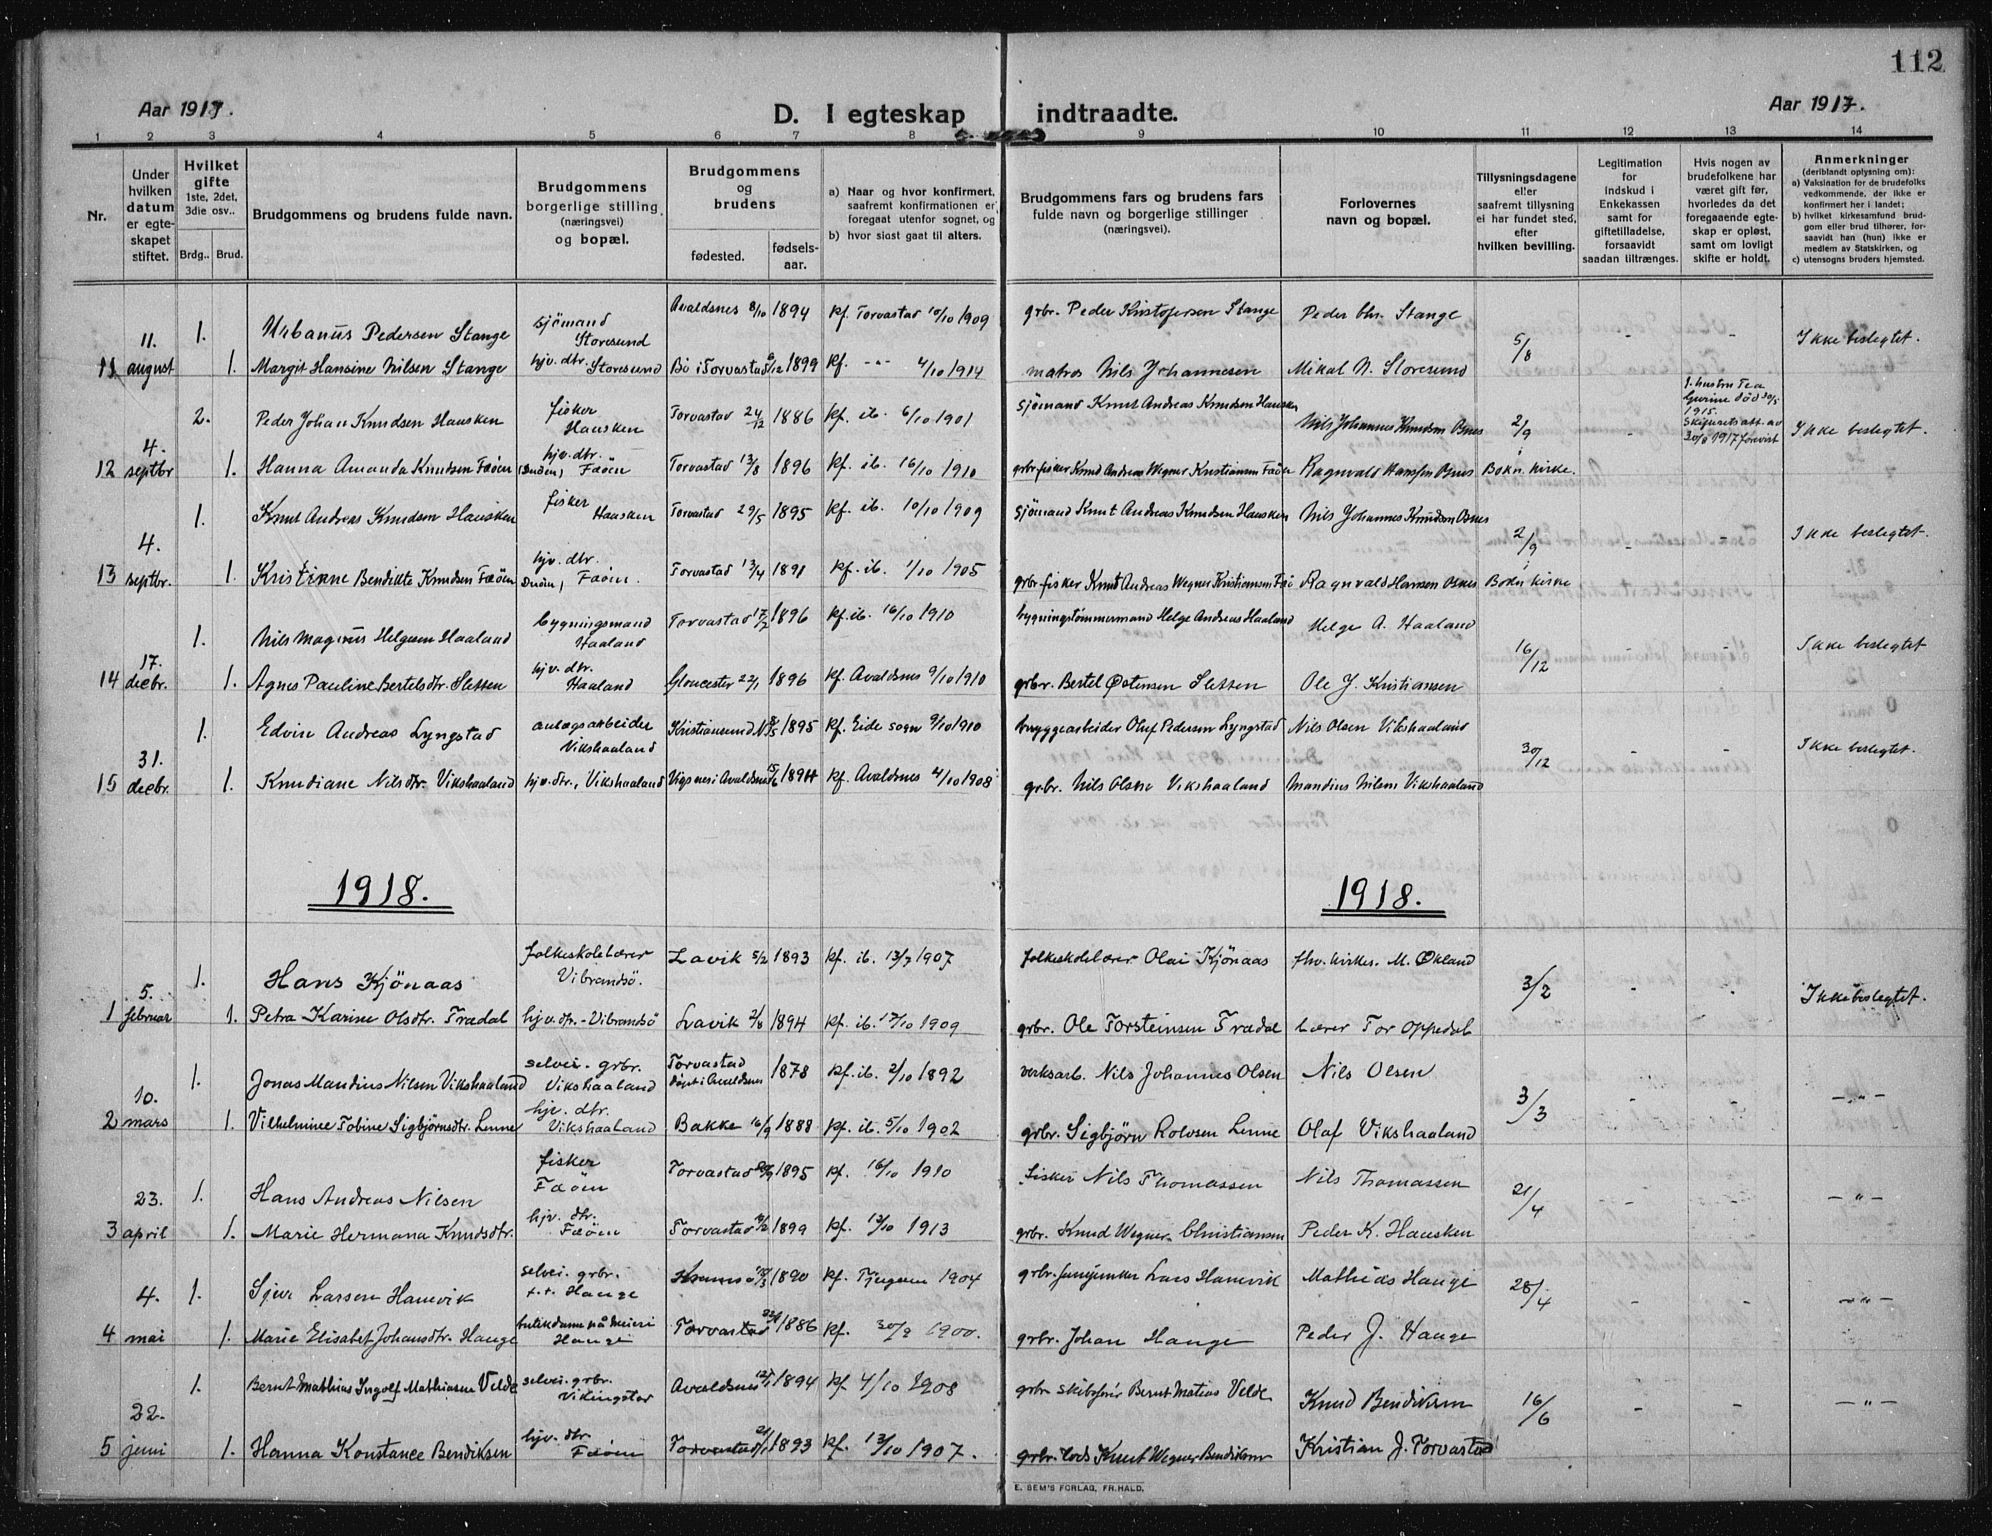 112
Aar 1917.
D. I egteskap indtraadte.
Aar 1917.
1 2 3 4 5 6 7 8 9 10 11 12 13 14
Nr.
Under hvilken datum er egteskapet stiftet.
Hvilket gifte 1ste, 2det, 3die osv..
Brdg.. Brud.
Brudgommens og brudens fulde navn.
Brudgommens borgerlige stilling (næringsvei) og bopæl.
Brudgommens og brudens
fødested.
fødselsaar.
a) Naar og hvor konfirmert, saafremt konfirmationen er foregaat utenfor sognet, og
b) hvor sidst gaat til alters.
Brudgommens fars og brudens fars fulde navn og borgerlige stillinger (næringsvei).
Forlovernes navn og bopæl.
Tillysningsdagene eller saafremt tillysning ei har fundet sted, efter hvilken bevilling.
Legitimation for indskud i Enkekassen samt for giftetilladelse, forsaavidt saadan tiltrænges.
Hvis nogen av brudefolkene har været gift før, hvorledes da det foregaaende egteskap er opløst, samt om lovligt skifte er holdt.
Anmerkninger (deriblandt oplysning om):
a) Vaksination for de brudefolks vedkommende, der ikke er konfirmert her i landet;
b) hvilket kirkesamfund brudgom eller brud tilhører, forsaavidt han (hun) ikke er medlem av Statskirken, og
c) utensogns bruders hjemsted.
1. Urbanus Pedersen Stange sjömand Storesund Avaldsnes 8/10 1894 kf. Torvastad 10/10 1909 grbr. Peder Kristofersen Stange Peder Chr. Stange 5/8 - - Ikke beslegtet.
11 11. august 1. Margit Hansine Nilsen Stange hjv. dtr. Storesund Bö i Torvastad 1899 kf. -"- 4/10 1914 matros Nils Johannesen Mikal N. Storesund
2. Peder Johan Knudsen Hausken fisker Hausken Torvastad 24/12 1886 kf. ib. 6/10 1901 sjömand Knut Andreas Knudsen Hausken Nils Johannes Knudsen Osnes 2/9 - 1. hustru Tea Gurine död 30/5 1915. Skifteretsatt. av 30/8 1917 forevist Ikke beslegtet.
12 4. septbr 1. Hanna Amanda Knudsen Fæöen hjv. dtr. Fæöen Torvastad 13/8 1896 kf. ib. 16/10 1910 grbr. fisker Knud Andreas Wegner Kristiansen Fæöen Ragnvald Hansen Osnes i Bokn kirke.
1. Knut Andreas Knudsen Hausken fisker Hausken Torvastad 29/5 1895 kf. ib. 10/10 1909 sjömand Knut Andreas Knudsen Hausken Nils Johannes Knudsen Osnes 2/9 - - Ikke beslegtet.
13 4. septbr. 1. Kristinne Bendikte Knudsen Fæöen hjv. dtr. Fæöen. Torvastad 13/4 1891 kf. ib. 1/10 1905 grbr. fisker Knut Andreas Wegner Kristiansen Fæö Ragnvald Hansen Osnes i Bokn kirke
1. Nils Magnus Helgesen Haaland bygningsmand Haaland Torvastad 17/2 1896 kf. ib. 16/10 1910 bygningstömmermand Helge Andreas Haaland Helge A. Haaland 16/12 - - Ikke beslegtet
14 17. decbr. 1. Agnes Pauline Bertelsdtr. Sletten hjv. dtr. Haaland Gloucester 22/1 1896 kf. Avaldsnes 9/10 1910 grbr. Bertel Östensen Sletten Ole J. Kristiansen
1. Edvin Andreas Lyngstad anlægsarbeider Vikshaaland Kristiansund N. 1895 kf. Eide sogn 9/10 1910 bryggearbeider Oluf Pedersen Lyngstad Nils Olsen Vikshaaland 30/12 - - Ikke beslegtet.
15 31. decbr. 1. Knudiane Nilsdtr. Vikshaaland hjv. dtr., Vikshaaland Vigsnes i Avaldsnes 1894 kf. Avaldsnes 4/10 1908 grbr. Nils Olsen Vikshaaland Mandius Nilsen Vikshaaland
1918. 1918.
1. Hans Kjönaas folkeskolelærer Vibrandsö. Lavik 5/2 1893 kf. ib. 13/7 1907 folkeskolelærer Olai Kjönaas fhv. kirkes. M. Ökland 3/2 - - Ikke beslegtet.
1 5. februar 1. Petra Karine Olsdtr. Trædal hjv. dtr. - Vibrandsö Lavik 2/8 1894 kf. ib. 17/10 1909 grbr. Ole Torsteinsen Trædal Lærer Tor Oppedal
1. Jonas Mandius Nilsen Vikshaaland selvei. grbr. Vikshaaland Torvastad döpt i Avaldsnes 1878 kf. ib. 2/10 1892 verksarb. Nils Johannes Olsen Nils Olsen 3/3 - - -"-
2 10. mars 1. Vilhelmine Tobine Sigbjörnsdtr. Lenne hjv. dtr. Vikshaaland Bakke 16/9 1888 kf. ib. 5/10 1902 grbr. Sigbjörn Rolvsen Lenne Olaf Vikshaaland
1. Hans Andreas Nilsen fisker Fæöen Torvastad 1895 kf. 16/10 1910 Fisker Nils Thomassen Nils Thomassen 21/4 - - -"-
3 23. april 1. Marie Hermana Knudsdtr. hjv. dtr. Fæöen Torvastad 1899 kf. 12/10 1913 grbr. Knud Wegner Christiansen Peder K. Hausken
1. Sjur Larsen Hanevik selvei. grbr. t.t. Hauge 1890 kf. 1904 grbr. Lars Hanevik Mathias Hauge 28/4 - - -"-
4 4. mai 1. Marie Elisabet Johansdtr. Hauge butikdame på Meieri Hauge Torvastad 1886 kf. 30/9 1900. grbr. Johan Hauge Peder J. Hauge
1. Bernt Mathias Ingolf Mathiasen Velde selvei. grbr. Vikingstad Avaldsnes 1894 kf 4/10 1908 grbr skibsförer Bernt Matias Velde Knud Bendiksen 16/6 - - -"-
5 22. juni 1. Hanna Konstance Bendiksen hjv. dtr Fæöen Torvastad 1893 kf. 13/10 1907. grbr. lods Knut Wegner Bendiksen Kristian J. Torvastad
E. SEM'S FORLAG, FR.HALD.